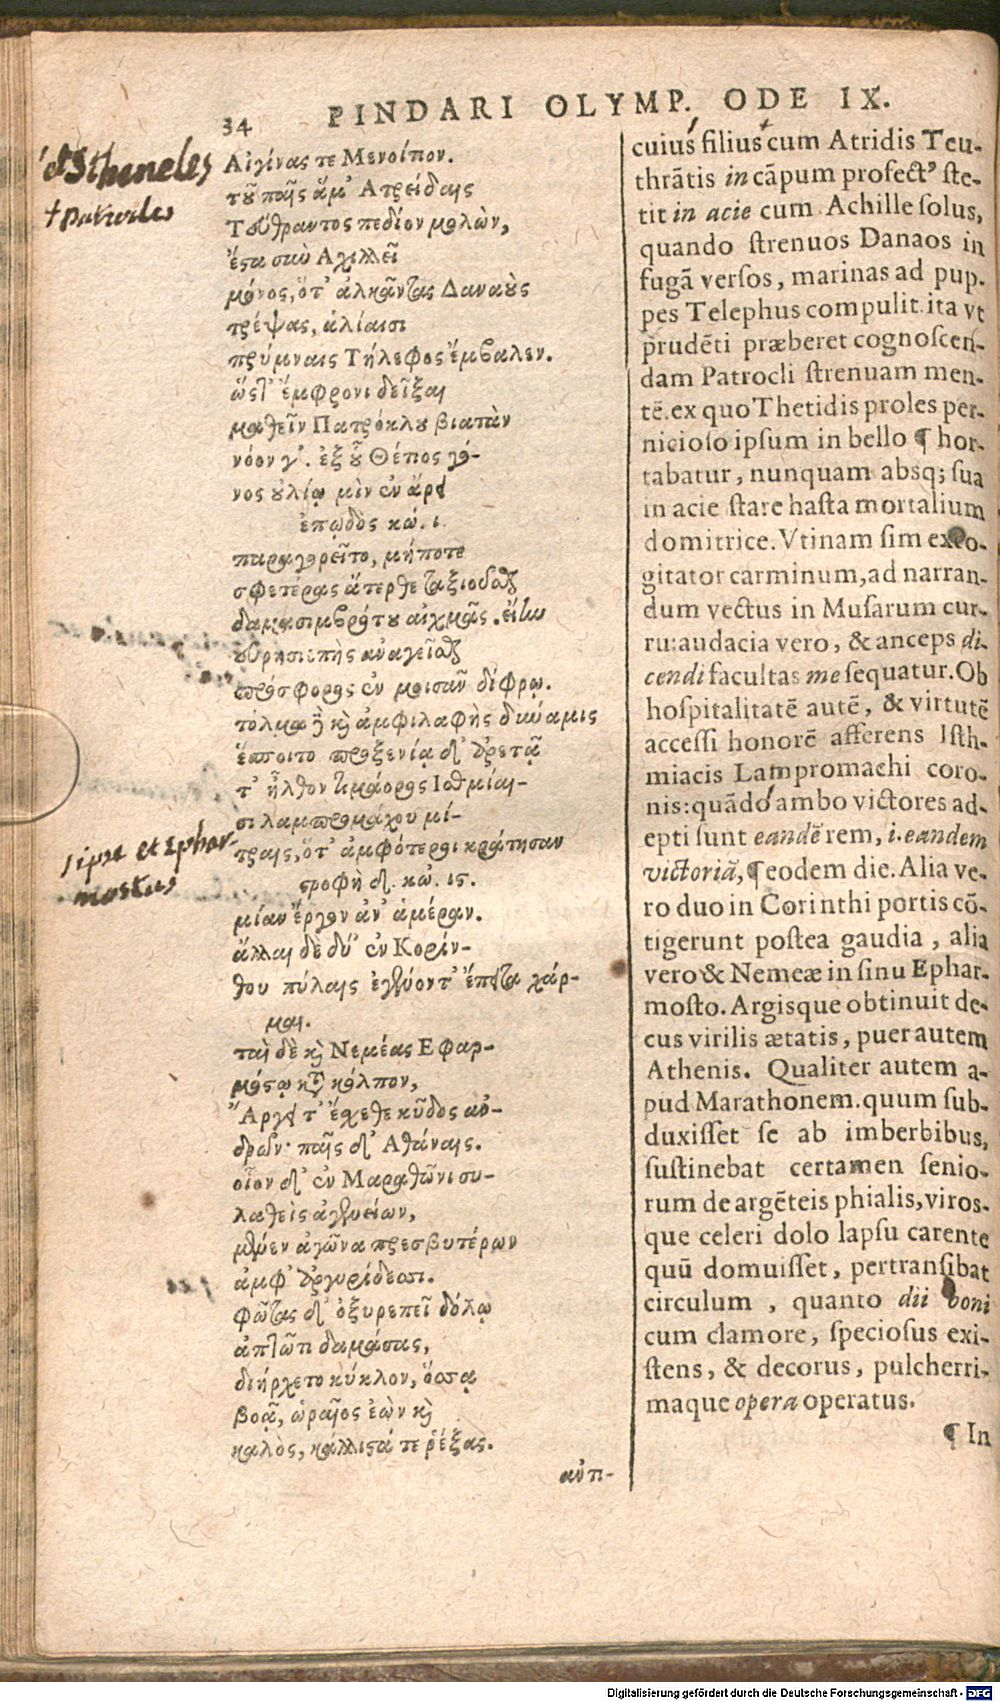 34 PINDARI OLYMP. ODE IX.
Αἰγίνας τε Μενοίπον.
τοῦ παῖς ἅμ' Ἀτρείδαις
Τεύθραντος πεδίον μολὼν,
ἔστα σὺν Ἀχιλλεῖ
μόνος, ὅτ' ἀλκᾶντας Δαναοὺς
τρέψας, ἁλίαισι
πρύμναις Τήλεφος ἔμβαλεν.
ὥστ' ἔμφρονι δεῖξαι
μαθεῖν Πατρόκλου βιατὰν
νόον γ'. ἐξ οὗ Θέτιος γό-
νος οὐλίῳ μὶν ἐν ἄρει
ἐπῳδὸς κώ. ι.
παραγορεῖτο, μήποτε
σφετέρας ἄτερθε ταξιοῦσθαι
δαμασιμβρότου αἰχμᾶς. εἴην
εὑρησιεπὴς ἀναγεῖσθαι
πρόσφορος ἐν μοισᾶν δίφρῳ.
τόλμα δὲ καὶ ἀμφιλαφὴς δύναμις
ἕσποιτο προξενίᾳ δ' ἀρετᾷ
τ' ἦλθον τιμάορος Ἰσθμίαι-
σι λαμπρομάχου μί-
τραις, ὅτ' ἀμφότεροι κράτησαν
στροφὴ δ. κώ. ις.
μίαν ἔργον ἀν' ἁμέραν.
ἄλλαι δὲ δύ' ἐν Κορίν-
θου πύλαις ἐγένοντ' ἔπειτα χάρ-
μαι.
ταὶ δὲ καὶ Νεμέας Ἐφαρ-
μόστῳ κατὰ κόλπον,
Ἄργει τ' ἔσχεθε κῦδος ἀν-
δρῶν· παῖς δ' Ἀθάναις.
οἷον δ' ἐν Μαραθῶνι συ-
λαθεὶς ἀγενείων,
μένεν ἀγῶνα πρεσβυτέρων
ἀμφ' ἀργυρίδεσσι.
φῶτας δ' ὀξυρεπεῖ δόλῳ
ἀπτῶτι δαμάσας,
διήρχετο κύκλον, ὅσσᾳ
βοᾷ, ὡραῖος ἐὼν καὶ
καλὸς, κάλλιστά τε ῥέξας.
αὖτι-
et Stheneles
† Patrocles
ipse et Ephar-
mostus
cuius filius cum Atridis Teu-
thrātis in cāpum profectꝰ ste-
tit in acie cum Achille solus,
quando strenuos Danaos in
fugā versos, marinas ad pup-
pes Telephus compulit. ita vt
prudēti præberet cognoscen-
dam Patrocli strenuam men-
tē. ex quo Thetidis proles per-
nicioso ipsum in bello ¶ hor-
tabatur, nunquam absq; sua
in acie stare hasta mortalium
domitrice. Vtinam sim exco-
gitator carminum, ad narran-
dum vectus in Musarum cur-
ru: audacia vero, & anceps di-
cendi facultas me sequatur. Ob
hospitalitatē autē, & virtutē
accessi honorē afferens Isth-
miacis Lampromachi coro-
nis: quādo ambo victores ad-
epti sunt eandē rem, i. eandem
victoriā, ¶ eodem die. Alia ve-
ro duo in Corinthi portis cō-
tigerunt postea gaudia, alia
vero & Nemeæ in sinu Ephar-
mosto. Argisque obtinuit de-
cus virilis ætatis, puer autem
Athenis. Qualiter autem a-
pud Marathonem. quum sub-
duxisset se ab imberbibus,
sustinebat certamen senio-
rum de argēteis phialis, viros-
que celeri dolo lapsu carente
quū domuisset, pertransibat
circulum, quanto dii boni
cum clamore, speciosus exi-
stens, & decorus, pulcherri-
maque opera operatus.
¶ In
Digitalisierung gefördert durch die Deutsche Forschungsgemeinschaft - DFG